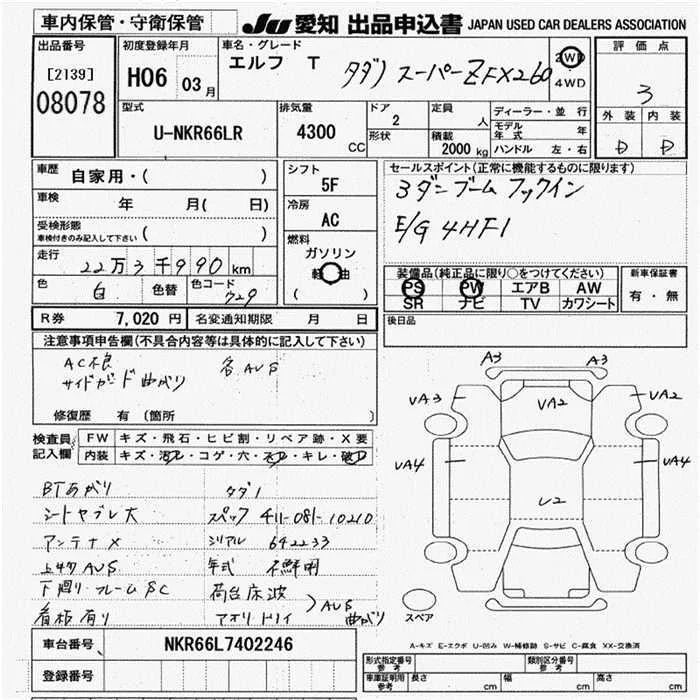 車内保管・守衛保管
JU 愛知 出品申込書 JAPAN USED CAR DEALERS ASSOCIATION
出品番号
[2139]
08078
初度登録年月
H06 03月
車名・グレード
エルフ T タダノ スーパーZFX260
2WD
4WD
評価点
3
外装 内装
D D
型式
U-NKR66LR
排気量
4300 CC
ドア
2
形状
定員
人
積載
2000 kg
ディーラー・並 行
モデル年式 年
ハンドル 左・右
車歴
自家用・( )
車検
年 月( 日)
受検形態
車検付きのみ記入して下さい ( )
走行
22万3千990km
色 白 色替 色コード 729
シフト
5F
冷房
AC
燃料
ガソリン
軽油
( )
セールスポイント(正常に機能するものに限ります)
3ダンブーム フックイン
E/G 4HF1
装備品(純正品に限り○をつけてください)
PS PW エアB AW
SR ナビ TV カワシート
新車保証書
有・無
R券 7,020円 名変通知期限 月 日
後日品
注意事項申告欄(不具合内容等は具体的に記入して下さい)
AC不良 各AUS
サイドガード曲がり
修復歴 有 (箇所 )
検査員記入欄
FW キズ・飛石・ヒビ割・リペア跡・X要
内装 キズ・汚レ・コゲ・穴・スレ・キレ・破レ
BTあがり タダノ
シートヤブレ大 スペック 411-081-10210
アンテナX シリアル 642233
上物AUS 年式 不鮮明
下廻り・フレームSC 荷台床波
看板有り アオリ・トリイ AUS 曲がり
A3 A3
UA3 UA2 UA2
UA4 UA4
U2
スペア
車台番号 NKR66L7402246
登録番号
A-キズ E-エクボ U-凹み W-補修跡 S-サビ C-腐食 XX-交換済
形式指定番号 参考
類別区分番号 参考
車庫証明用 参考 長さ cm 幅 cm 高さ cm